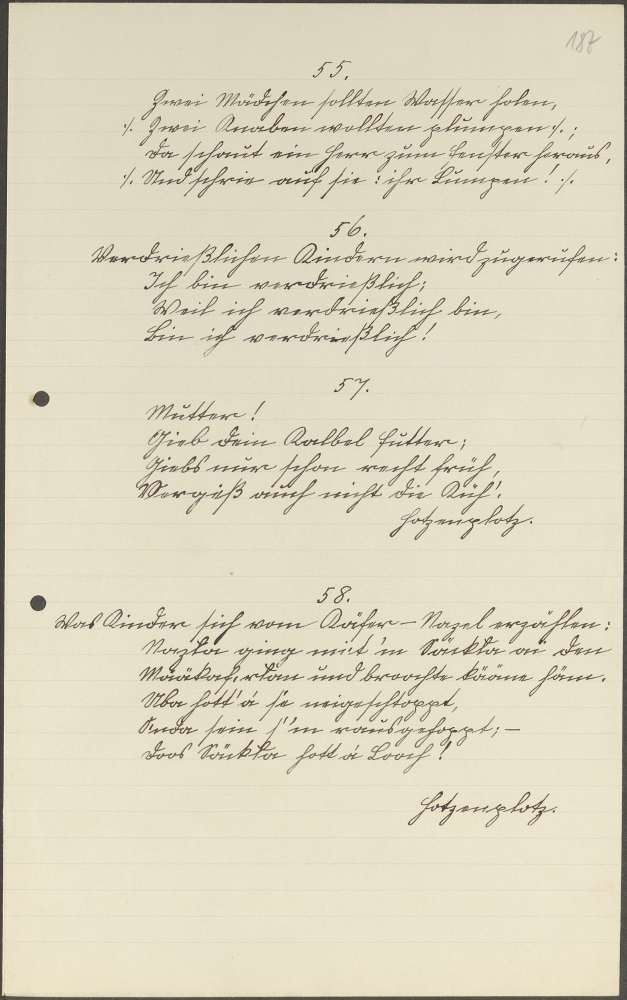 187
55.
Zwei Mädchen sollten Wasser holen,
:/: Zwei Knaben wollten plumpen :/: ;
Da schaut ein Herr zum Fenster heraus,
:/: Und schrie auf sie: ihr Lumpen! :/:
56.
Verdrießlichen Kindern wird zugerufen:
Ich bin verdrießlich;
Weil ich verdrießlich bin,
Bin ich verdrießlich!
57.
Mutter!
Gieb dein Kalbel Futter;
Giebs nur schon recht früh,
Vergeß auch nicht die Küh!
Hotzenplotz.
58.
Was Kinder sich vom Käfer-Nazel erzählen:
Nazla ging mit'm Säckla ai den
und broochte kääne häm.
Uba hott' á se neigeschtoppt,
Onda sein s'm rausgehoppt; —
Doos Säckla hott á Looch!
Hotzenplotz.